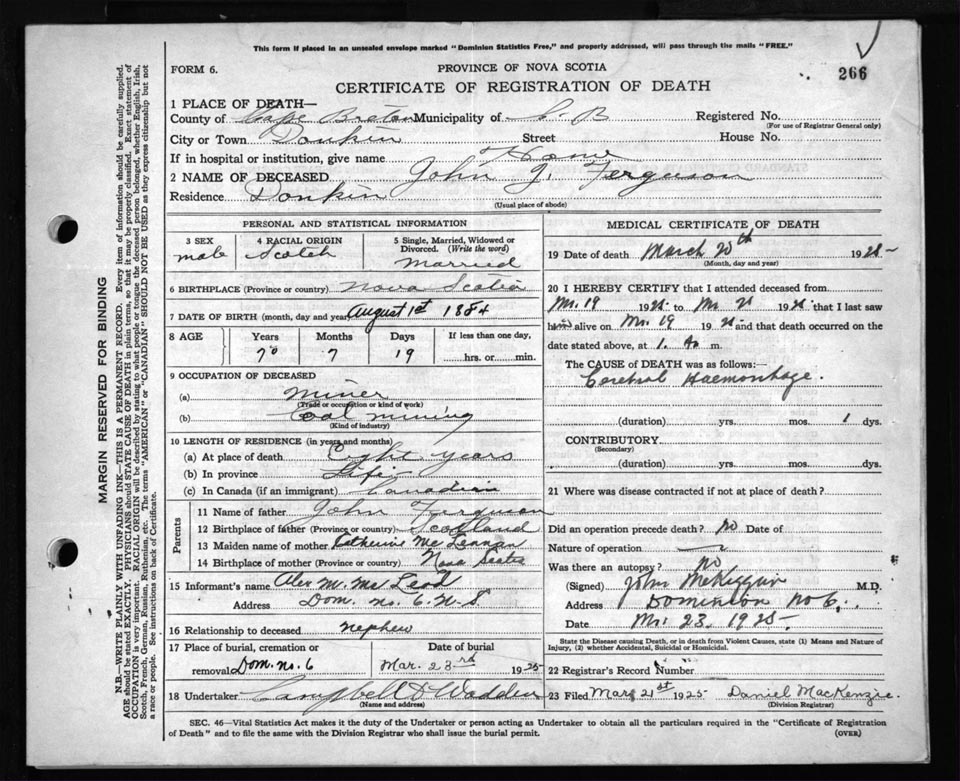 This form if placed in an unsealed envelope marked "Dominion Statistics Free," and properly addressed, will pass through the mails "FREE."
266
FORM 6.
PROVINCE OF NOVA SCOTIA
CERTIFICATE OF REGISTRATION OF DEATH
1 PLACE OF DEATH—
County of Cape Breton Municipality of C-B Registered No.
(For use of Registrar General only)
City or Town Donkin Street House No.
If in hospital or institution, give name Home
2 NAME OF DECEASED John J. Ferguson
Residence Donkin
(Usual place of abode)
PERSONAL AND STATISTICAL INFORMATION
3 SEX male
4 RACIAL ORIGIN Scotch
5 Single, Married, Widowed or Divorced. (Write the word) Married
6 BIRTHPLACE (Province or country) Nova Scotia
7 DATE OF BIRTH (month, day and year) August 1st 1854
8 AGE Years Months Days If less than one day,
70 7 19 hrs. or min.
9 OCCUPATION OF DECEASED
(a) Miner
(Trade or occupation or kind of work)
(b) Coal mining
(Kind of industry)
10 LENGTH OF RESIDENCE (in years and months)
(a) At place of death Eight years
(b) In province Life
(c) In Canada (if an immigrant) Canadian
Parents
11 Name of father John Ferguson
12 Birthplace of father (Province or country) Scotland
13 Maiden name of mother Catherine McLennan
14 Birthplace of mother (Province or country) Nova Scotia
15 Informant's name Alex M. McLeod
Address Dom. No. 6. N.S.
16 Relationship to deceased nephew
17 Place of burial, cremation or removal Dom. No. 6
Date of burial
Mar. 23rd 1925
18 Undertaker Campbell & Wadden
(Name and address)
MEDICAL CERTIFICATE OF DEATH
19 Date of death March 20th 1925-
(Month, day and year)
20 I HEREBY CERTIFY that I attended deceased from
Mr. 19 1925 to Mr 1925 that I last saw
him alive on Mr. 19 1925 and that death occurred on the
date stated above, at 1. m.
The CAUSE OF DEATH was as follows:
Cerebral Haemorrhage.
(duration) yrs. mos. 1 dys.
CONTRIBUTORY.
(Secondary)
(duration) yrs. mos. dys.
21 Where was disease contracted if not at place of death?
Did an operation precede death? No Date of
Nature of operation
Was there an autopsy? No
(Signed) John McKiggan M.D.
Address Dominion No 6.
Date Mr. 23, 1925-
State the Disease causing Death, or in death from Violent Causes, state (1) Means and Nature of
Injury, (2) whether Accidental, Suicidal or Homicidal.
22 Registrar's Record Number
23 Filed Mar 21st 1925 Daniel MacKenzie.
(Division Registrar)
SEC. 46—Vital Statistics Act makes it the duty of the Undertaker or person acting as Undertaker to obtain all the particulars required in the "Certificate of Registration
of Death" and to file the same with the Division Registrar who shall issue the burial permit. (OVER)
MARGIN RESERVED FOR BINDING
N.B.—WRITE PLAINLY WITH UNFADING INK—THIS IS A PERMANENT RECORD. Every item of information should be carefully supplied.
AGE should be stated EXACTLY. PHYSICIANS should STATE CAUSE OF DEATH in plain terms, so that it may be properly classified. Exact statement of
OCCUPATION is very important. RACIAL ORIGIN will be described by stating to what people or tongue the deceased person belonged, whether English, Irish,
Scotch, French, German, Russian, Ruthenian, etc. The terms "AMERICAN" or "CANADIAN" SHOULD NOT BE USED as they express citizenship but not
a race or people. See instructions on back of Certificate.